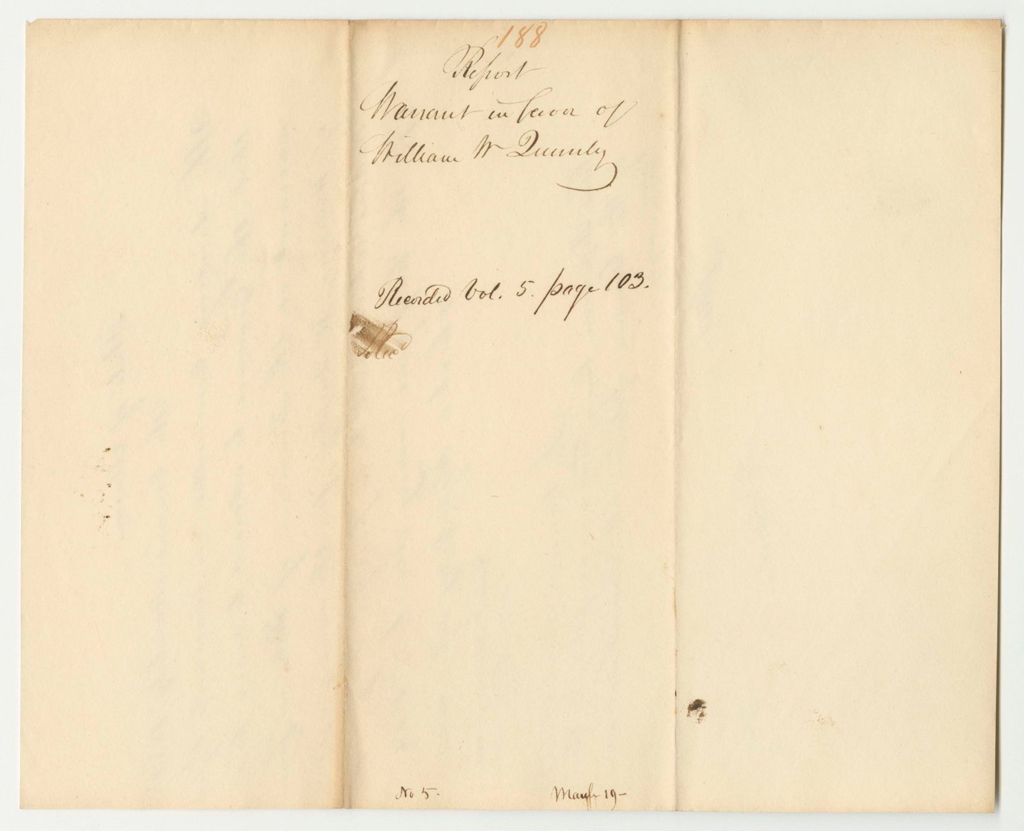 188
Report
Warrant in favor of
William W Quimby
Recorded Vol. 5. page 103.
No 5. March 19-